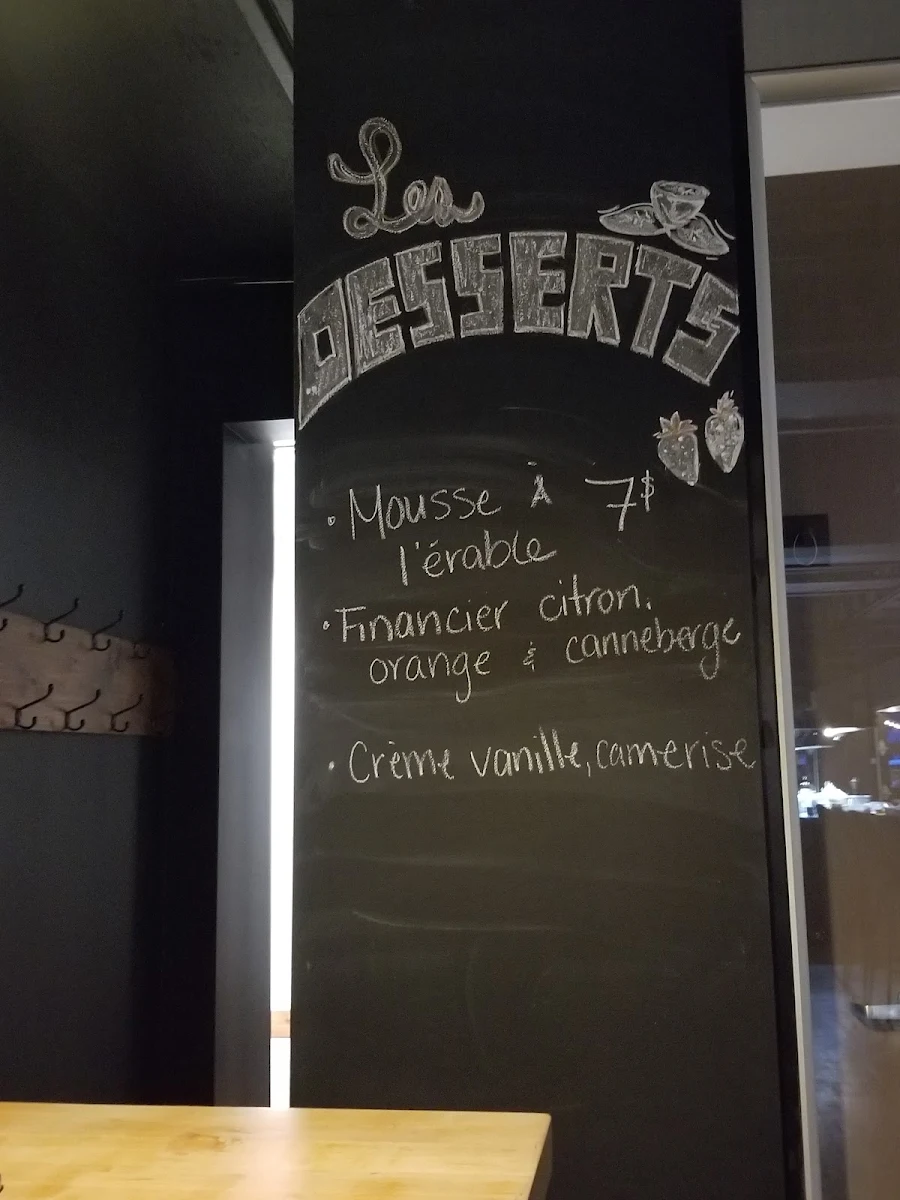 Les
DESSERTS
• Mousse À 7$
l'érable
• Financier citron,
orange & canneberge
• Crème vanille, camerise